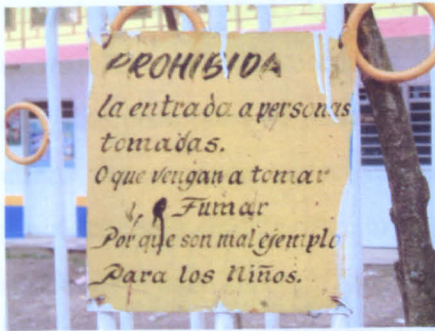 PROHIBIDA
la entrada a personas
tomadas.
O que vengan a tomar
y Fumar
Por que son mal ejemplo
Para los Niños.